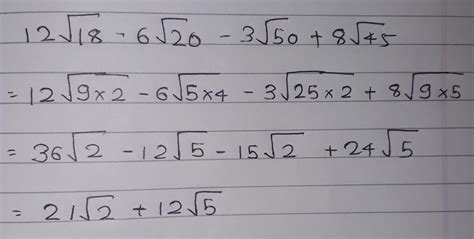 12√18 - 6√20 - 3√50 + 8√45
= 12√9×2 - 6√5×4 - 3√25×2 + 8√9×5
= 36√2 - 12√5 - 15√2 + 24√5
= 21√2 + 12√5